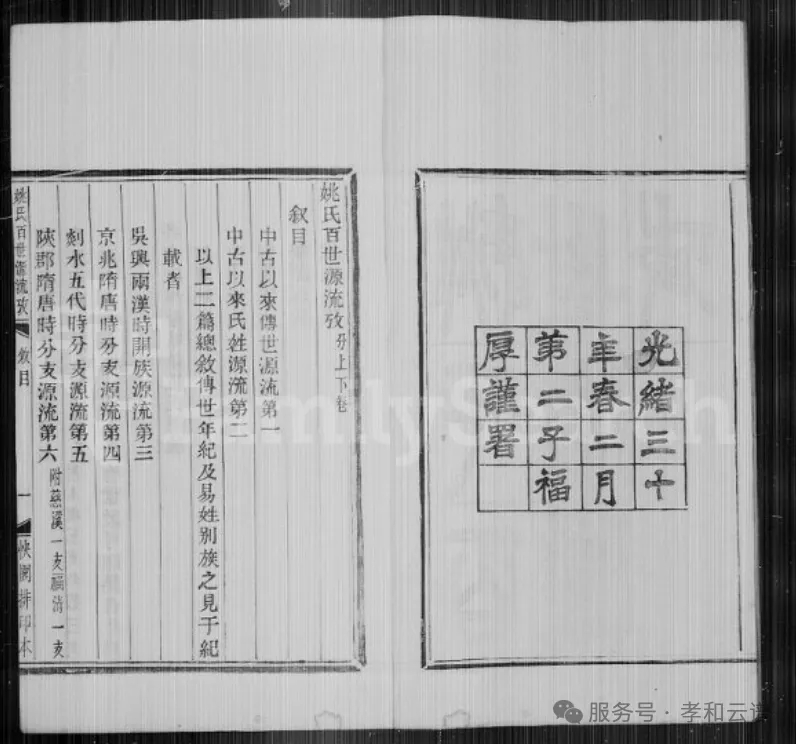 光緒三十
年春二月
第二子福
厚謹署
姚氏百世源流攷 分上下卷
叙目
中古以來傳世源流第一
中古以來氏姓源流第二
以上二篇總敘傳世年紀及易姓別族之見于紀
載者
吳興兩漢時開族源流第三
京兆隋唐時分支源流第四
剡水五代時分支源流第五
陝郡隋唐時分支源流第六 附慈溪一支福清一支
姚氏百世源流攷 叙目 一
排印本
服务号·孝和云谱